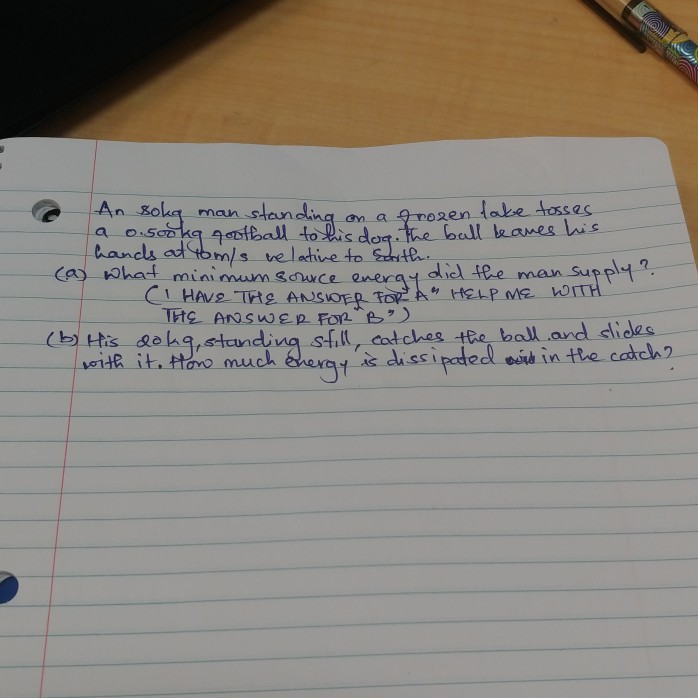 An 80kg man standing on a frozen lake tosses
a 0.500kg football to his dog. The ball leaves his
hands at 10m/s relative to Earth.
(a) What minimum source energy did the man supply?
(I HAVE THE ANSWER FOR "A" HELP ME WITH
THE ANSWER FOR "B")
(b) His 20kg, standing still, catches the ball and slides
with it. How much energy is dissipated in the catch?